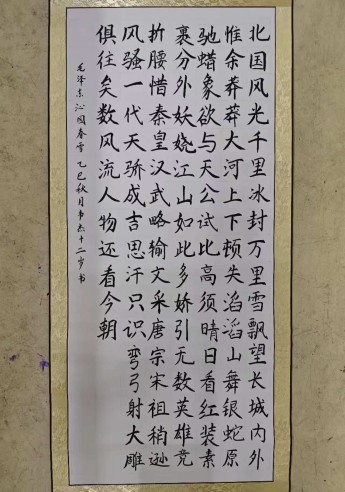 北国风光千里冰封万里雪飘望长城内外
惟余莽莽大河上下顿失滔滔山舞银蛇原
驰蜡象欲与天公试比高须晴日看红装素
裹分外妖娆江山如此多娇引无数英雄竞
折腰惜秦皇汉武略输文采唐宗宋祖稍逊
风骚一代天骄成吉思汗只识弯弓射大雕
俱往矣数风流人物还看今朝
毛泽东沁园春雪乙巳秋月十二岁书